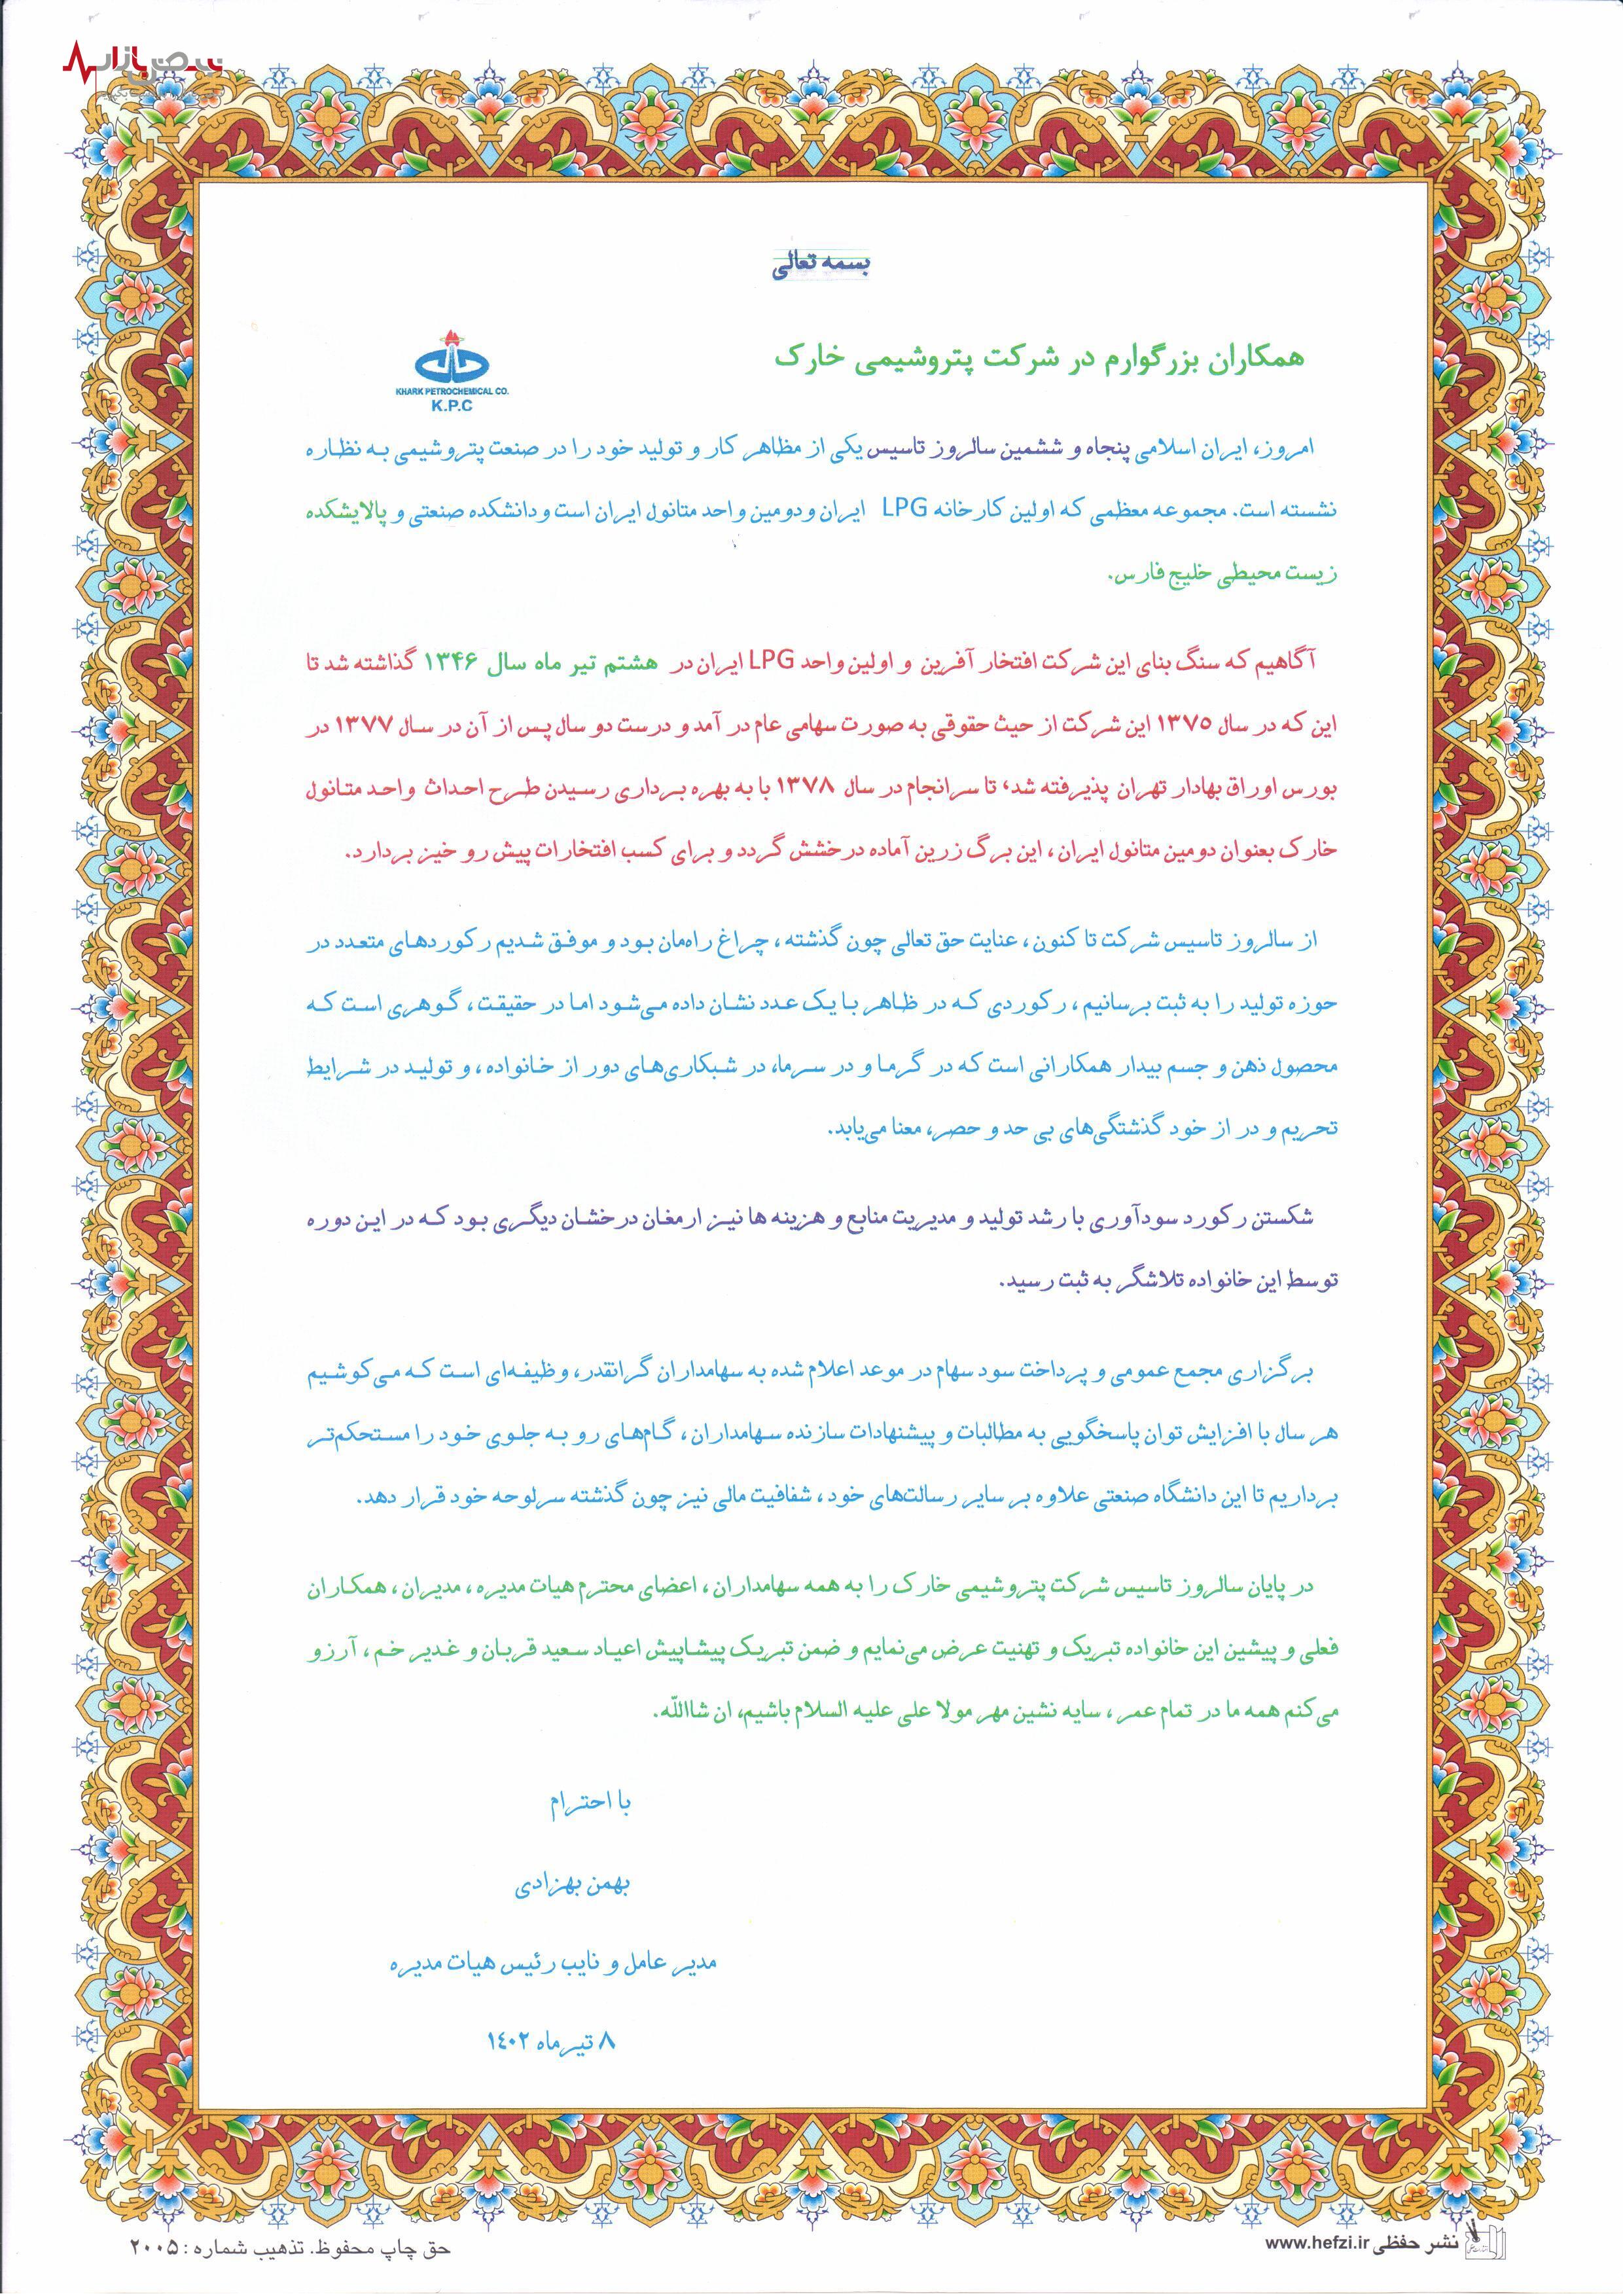 نبض بازار
بسمه تعالی
همکاران بزرگوارم در شرکت پتروشیمی خارک
KHARK PETROCHEMICAL CO.
K.P.C
امروز، ایران اسلامی پنجاه و ششمین سالروز تاسیس یکی از مظاهر کار و تولید خود را در صنعت پتروشیمی به نظاره
نشسته است. مجموعه معظمی که اولین کارخانه LPG ایران و دومین واحد متانول ایران است و دانشکده صنعتی و پالایشکده
زیست محیطی خلیج فارس.
آگاهیم که سنگ بنای این شرکت افتخار آفرین و اولین واحد LPG ایران در هشتم تیر ماه سال ۱۳۴۶ گذاشته شد تا
این که در سال ۱۳۷۵ این شرکت از حیث حقوقی به صورت سهامی عام در آمد و درست دو سال پس از آن در سال ۱۳۷۷ در
بورس اوراق بهادار تهران پذیرفته شد، تا سرانجام در سال ۱۳۷۸ با به بهره برداری رسیدن طرح احداث واحد متانول
خارک بعنوان دومین متانول ایران ، این برگ زرین آماده درخشش گردد و برای کسب افتخارات پیش رو خیز بردارد.
از سالروز تاسیس شرکت تا کنون ، عنایت حق تعالی چون گذشته ، چراغ راه‌مان بود و موفق شدیم رکوردهای متعدد در
حوزه تولید را به ثبت برسانیم ، رکوردی که در ظاهر با یک عدد نشان داده می‌شود اما در حقیقت ، گوهری است که
محصول ذهن و جسم بیدار همکارانی است که در گرما و در سرما، در شبکاری‌های دور از خانواده ، و تولید در شرایط
تحریم و در از خود گذشتگی‌های بی حد و حصر، معنا می‌یابد.
شکستن رکورد سودآوری با رشد تولید و مدیریت منابع و هزینه ها نیز ارمغان درخشان دیگری بود که در این دوره
توسط این خانواده تلاشگر به ثبت رسید.
برگزاری مجمع عمومی و پرداخت سود سهام در موعد اعلام شده به سهامداران گرانقدر، وظیفه‌ای است که می‌کوشیم
هر سال با افزایش توان پاسخگویی به مطالبات و پیشنهادات سازنده سهامداران ، گام‌های رو به جلوی خود را مستحکم‌تر
برداریم تا این دانشگاه صنعتی علاوه بر سایر رسالت‌های خود ، شفافیت مالی نیز چون گذشته سرلوحه خود قرار دهد.
در پایان سالروز تاسیس شرکت پتروشیمی خارک را به همه سهامداران ، اعضای محترم هیات مدیره ، مدیران ، همکاران
فعلی و پیشین این خانواده تبریک و تهنیت عرض می‌نمایم و ضمن تبریک پیشاپیش اعیاد سعید قربان و غدیر خم ، آرزو
می‌کنم همه ما در تمام عمر ، سایه نشین مهر مولا علی علیه السلام باشیم، ان شاالله.
با احترام
بهمن بهزادی
مدیر عامل و نایب رئیس هیات مدیره
۸ تیرماه ۱۴۰۲
نشر حفظی www.hefzi.ir
حق چاپ محفوظ. تذهیب شماره : ۲۰۰۵